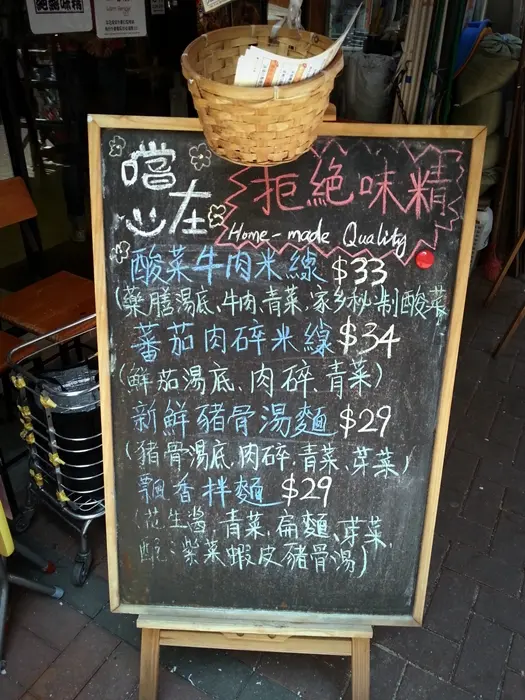 嚐在心
拒絕味精
Home-made Quality
酸菜牛肉米線 $33
(藥膳湯底、牛肉、青菜、家乡秘制酸菜
蕃茄肉碎米線 $34
(鮮茄湯底、肉碎、青菜)
新鮮豬骨湯麵 $29
(豬骨湯底、肉碎、青菜、芽菜)
飄香拌麵 $29
(花生醬、青菜、扁麵、芽菜、
配:紫菜蝦皮豬骨湯)